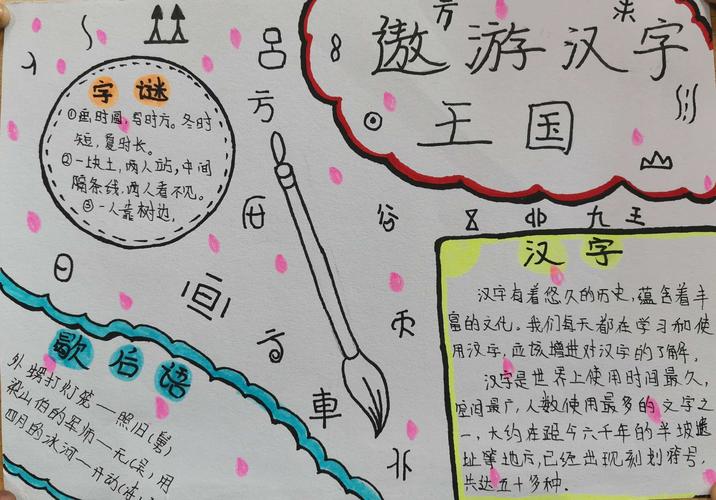 遨游汉字
王国
字谜
①画时圆，写时方。冬时
短，夏时长。
②一块土，两人站，中间
隔条线，两人看不见。
③一人靠树边，
方
日
車
九
王
汉字
汉字有着悠久的历史，蕴含着丰
富的文化。我们每天都在学习和使
用汉字，应该增进对汉字的了解，
汉字是世界上使用时间最久，
空间最广，人数使用最多的文字之
一，大约在距今六千年的半坡遗
址等地方，已经出现刻划符号，
共达五十多种。
歇后语
外甥打灯笼—照旧(舅)
梁山伯的
四月的冰河—开动(冻)